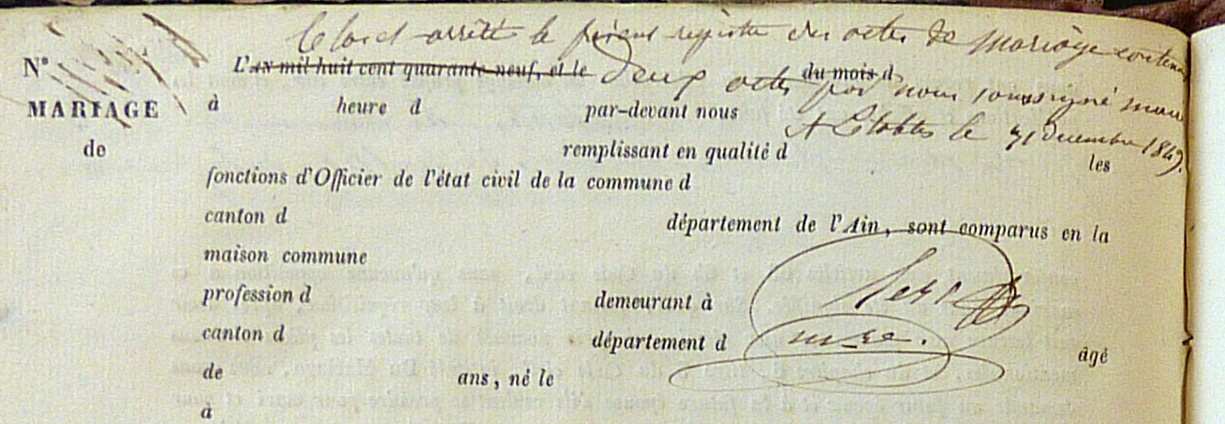 Clos et arrêté le présent registre des actes de Mariage contenant
N° L'AN mil huit cent quarante-neuf, et le deux actes du mois d par nous soussigné maire
MARIAGE à heure d par-devant nous
A le 31 décembre 1849.
de remplissant en qualité d les
fonctions d'Officier de l'état civil de la commune d
canton d département de l'Ain, sont comparus en la
maison commune
profession d demeurant à
canton d département d mre. âgé
de ans, né le
à